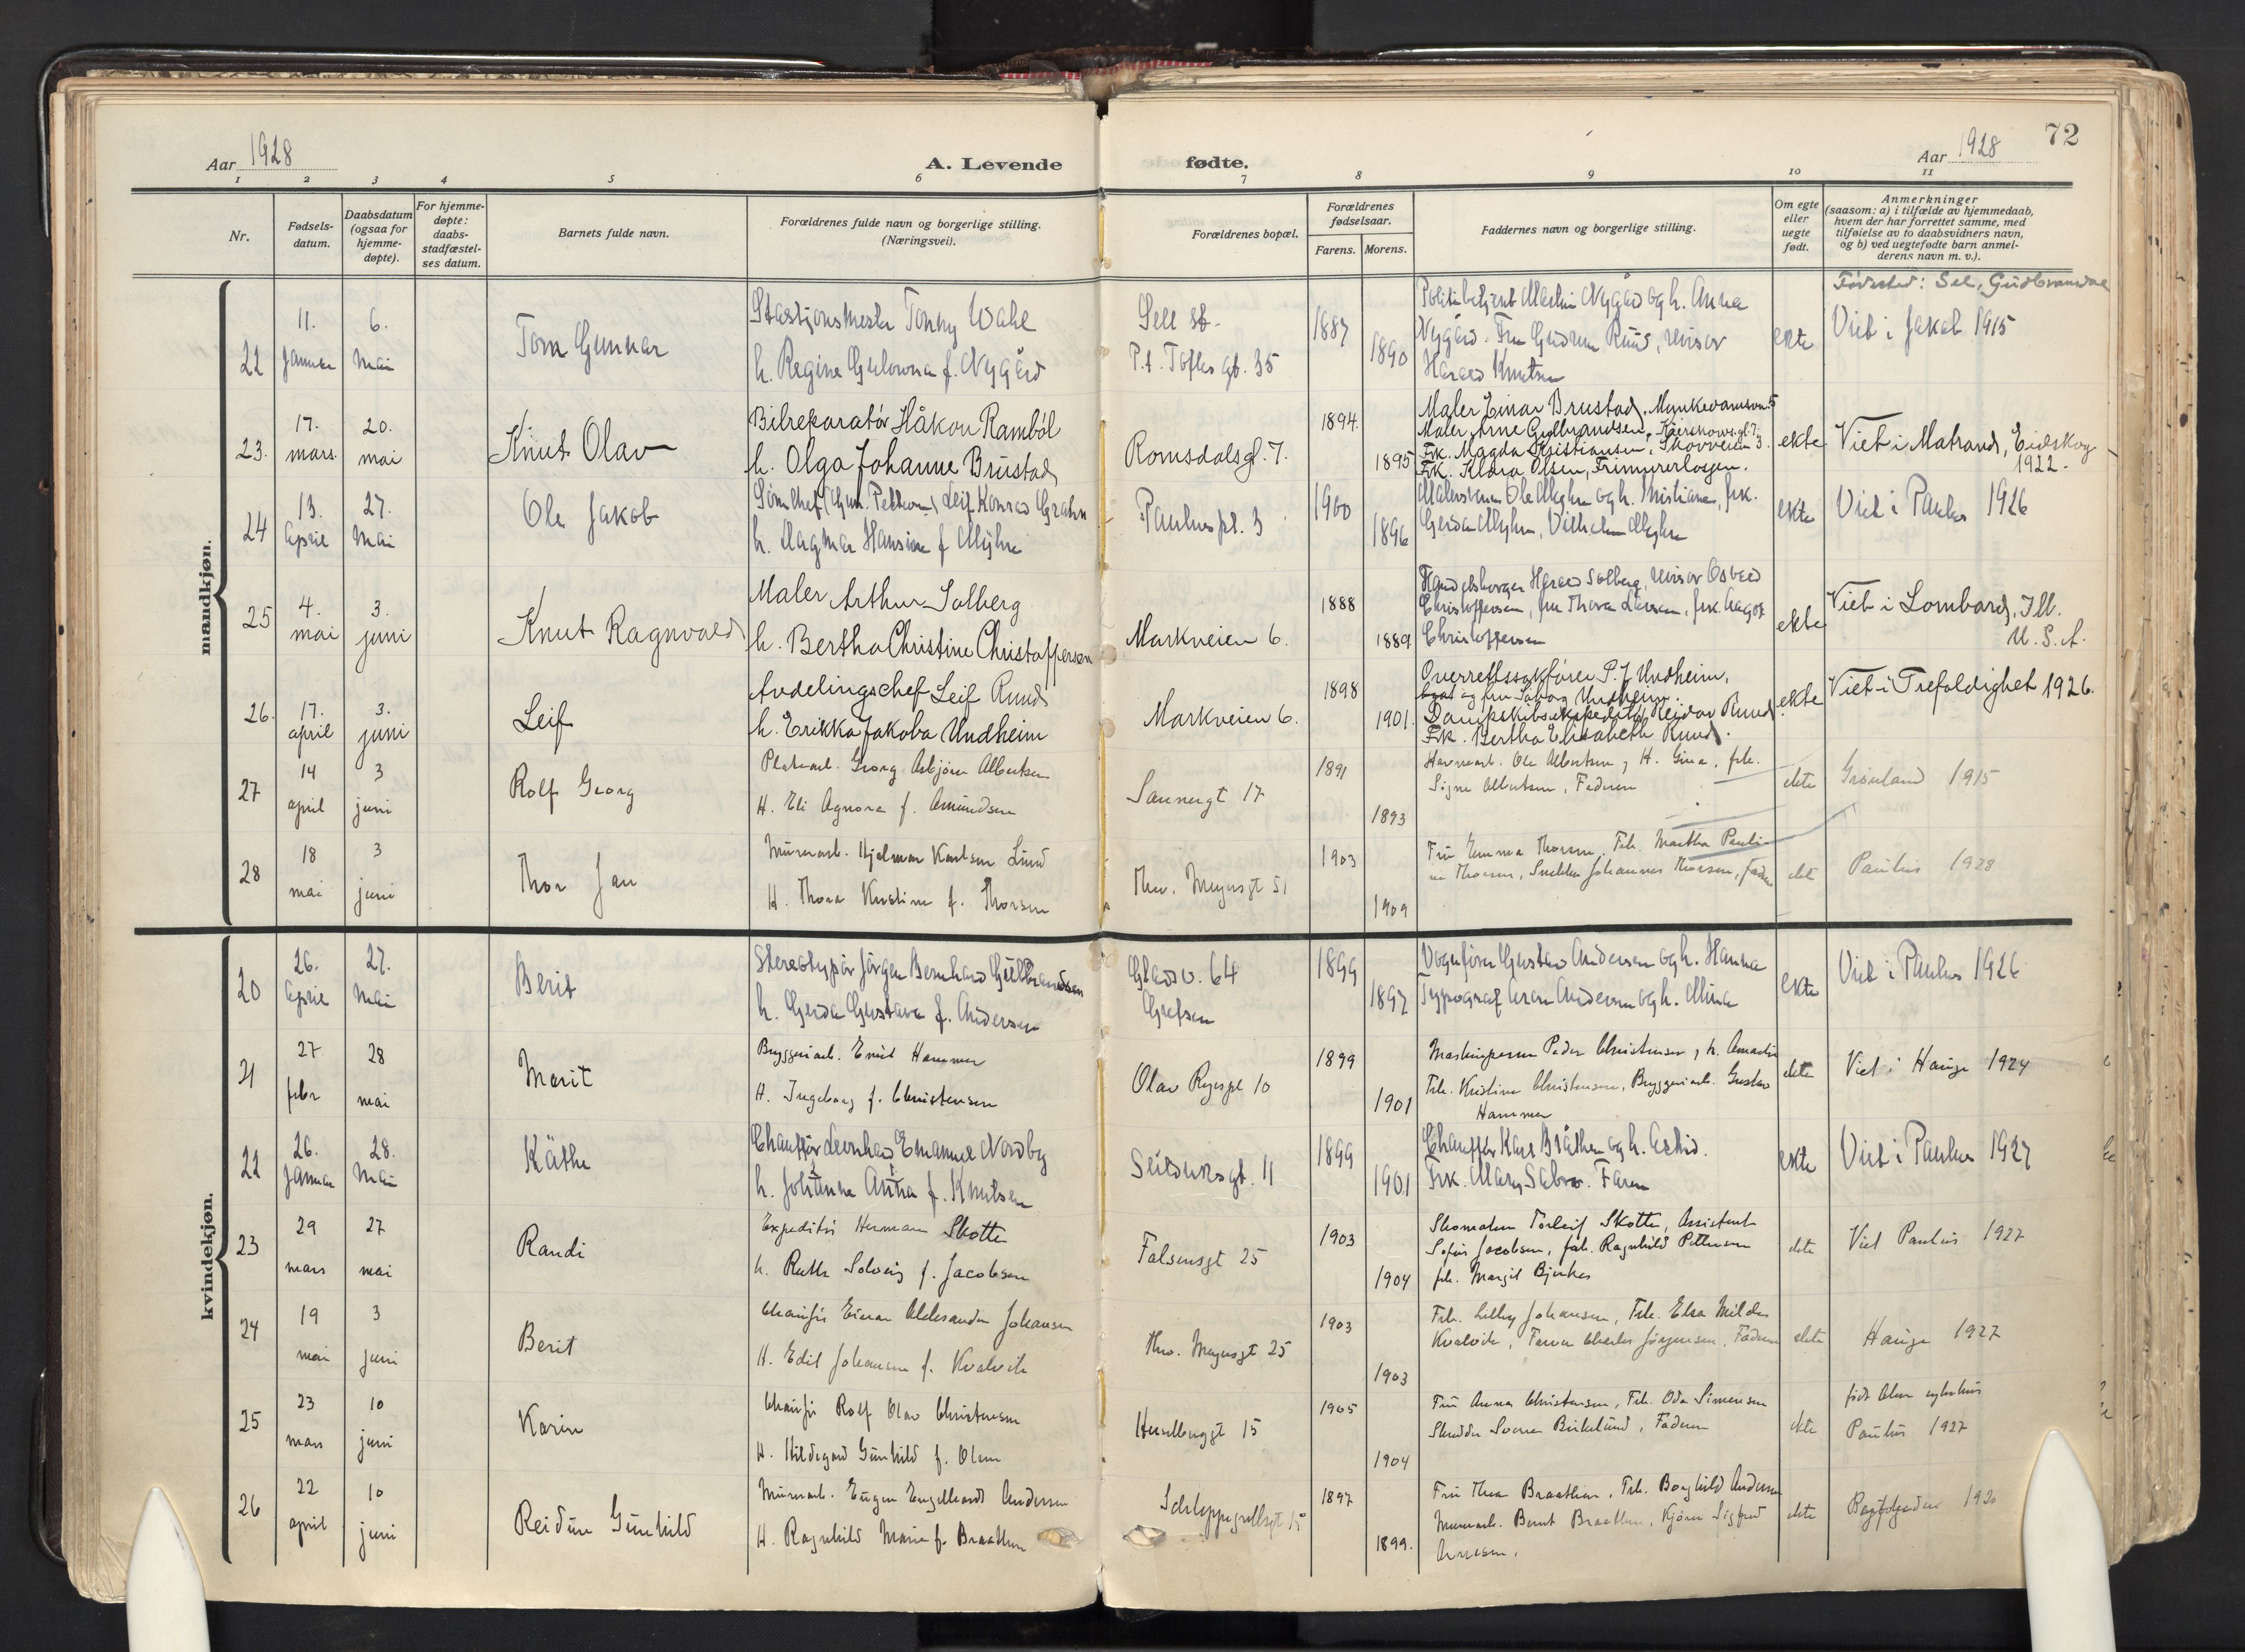 Aar 1928
A. Levende
fødte.
Aar 1928
72
1 2 3 4 5 6 7 8 9 10 11
Nr.
Fødsels-
datum.
Daabsdatum
(ogsaa for
hjemme-
døpte).
For hjemme-
døpte:
daabs-
stadfæstel-
ses datum.
Barnets fulde navn.
Forældrenes fulde navn og borgerlige stilling.
(Næringsvei).
Forældrenes bopæl.
Forældrenes
fødselsaar.
Farens. Morens.
Faddernes navn og borgerlige stilling.
Om egte
eller
uegte
født.
Anmerkninger
(saasom: a) i tilfælde av hjemmedaab,
hvem der har forrettet samme, med
tilføielse av to daabsvidners navn,
og b) ved uegtefødte barn anmel-
derens navn m. v.).
mandkjøn.
22
11.
Januar
6.
Mai
Tom Gunnar
Stasjonsmester Tonny Wahl
h. Regine Gulowna f. Nygård
Sell st.
P.t. Toftes gt. 35
1887
1890
Politibetjent Martin Nygård og h. Anna
Nygård. Fru Gudrun Ruud, revisor
Harald Knutsen
ekte
Fødested: Sel, Gudbransdal
Viet i Jakob 1915
23.
17.
mars.
20.
mai
Knut Olav
Bilreparatör Håkon Ramböl
h. Olga Johanne Brustad
Romsdalsgt. 7.
1894.
1895
Maler Einar Brustad, Munkedamsv. 5
Maler Arne Gulbrandsen,
Frk. Magda Kristiansen, Skovveien 3.
Frk. Klara Olsen, Frimurerlosjen.
ekte
Viet i Matrand, Eidskog
1922.
24
13.
April
27.
Mai
Ole Jakob
Leif Konrad Grahn
h. Dagmar Hansine f. Myhre
Pauluspl. 3
1900
1896
Malersvenn Ole Myhre og h. Kristiane, frk.
Gerda Myhre, Vilhelm Myhre
ekte
Viet i Paulus 1926
25
4.
mai
3.
juni
Knut Ragnvald
Maler Arthur Solberg
h. Bertha Christine Christoffersen
Markveien 6.
1888
1889.
Handelsborger Harald Solberg, revisor Osvald
Christoffersen, fru Thora Larsen, frk. Aagot
Christoffersen
ekte
Viet i Lombard, Ill.
U. S. A.
26.
17.
april
3.
juni
Leif
Avdelingschef Leif Ruud
h. Erikka Jakoba Undheim
Markveien 6.
1898
1901.
Overrettssakfører P. J. Undheim,
og fru Undheim.
Dampskibsekspeditör Reidar Ruud
Frk. Bertha Elisabeth Ruud.
ekte
Viet i Trefoldighet 1926.
27
14
april
3
juni
Rolf Georg
Platearb. Georg Asbjörn Albertsen
H. Eli Agnora f. Amundsen
Sannergt 17
1891
1893
Havnearb. Ole Albertsen, H. Gina, frk.
Signe Albertsen, Faderen
ekte
Grønland 1915
28
18
mai
3
juni
Thor Jan
Murerarb. Hjalmar Karlsen Lund
H. Thora Kristine f. Thorsen
Thv. Meyersgt 51
1903
1909
Fru Emma Thorsen, Frk. Martha Pauli-
ne Thorsen, Snekker Johannes Thorsen, Faderen
ekte
Paulus 1928
kvindekjøn.
20
26.
April
27.
Mai
Berit
Stereotypør Jörgen Bernhard Gulbrandsen
h. Gerda Gustava f. Andersen
Gladsv. 64
Grefsen
1899
1897
Vognfører Gustav Andersen og h. Hanna
Typograf Aron Andersen og h. Mina
ekte
Viet i Paulus 1926
21
27
febr
28
mai
Marit
Bryggeriarb. Emil Hammer
H. Ingeborg f. Christensen
Olav Ryespl 10
1899
1901
Maskinpasser Peder Christensen, h. Amalie
Frk. Kristine Christensen, Bryggeriarb. Gustav
Hammer
ekte
Viet i Hauge 1924
22
26.
Januar
28.
Mai
Käthe
Chauffør Leonhard Emanuel Nordby
h. Johanne Anna f. Knutsen
Seilduksgt. 11
1899
1901
Chauffør Karl Bråthen og h. Astrid.
Frk. Mary Sabro. Faren
ekte
Viet i Paulus 1927
23
29
mars
27
mai
Randi
Expeditör Herman Skotte
h. Ruth Solveig f. Jacobsen
Falsensgt 25
1903
1904
Skomaker Torleif Skotte, Assistent
Sofus Jacobsen, frk. Ragnhild Pettersen
frk. Margit Bjerkås
ekte
Viet Paulus 1927
24
19
mai
3
juni
Berit
Chauffør Einar Aleksander Johansen
H. Edit Johansen f. Kvalvik
Thv. Meyersgt 25
1903
1903
Frk. Lilly Johansen, Frk. Elsa Milda
Kvalvik, Charles Jörgensen, Faderen
ekte
Hauge 1927
25
23
mars
10
juni
Karin
Chauffør Rolf Olav Christensen
H. Hildegard Gunhild f. Olsen
Heselberggt 15
1905
1904
Fru Anna Christensen, Frk. Oda Simensen
Skredder Sverre Birkelund, Faderen
ekte
født Aker sykehus
Paulus 1927
26
22
april
10
juni
Reidun Gunhild
Murerarb. Eugen Engelhardt Andersen
H. Ragnhild Marie f. Braathen
Schleppegrellsgt 15
1897
1899.
Fru Thea Braathen, Frk. Borghild Andersen
Murerarb. Bernt Braathen, Kjører Sigfred
Arnesen.
ekte
1920